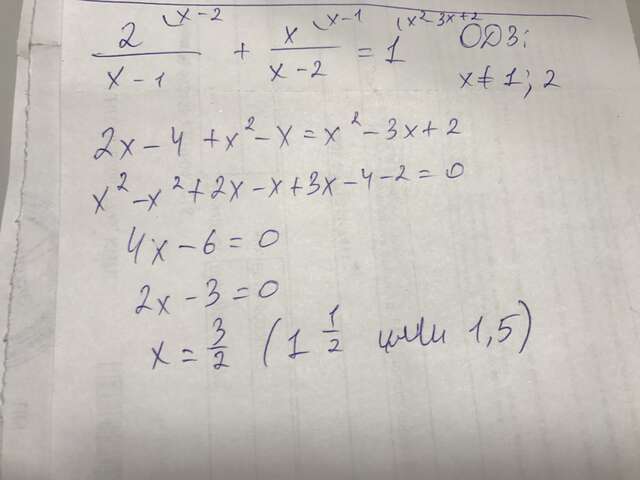 2 (x-2 / x-1 + x (x-1 / x-2 = 1 (x²-3x+2 ОДЗ: x ≠ 1; 2
2x - 4 + x² - x = x² - 3x + 2
x² - x² + 2x - x + 3x - 4 - 2 = 0
4x - 6 = 0
2x - 3 = 0
x = 3/2 (1 1/2 или 1,5)